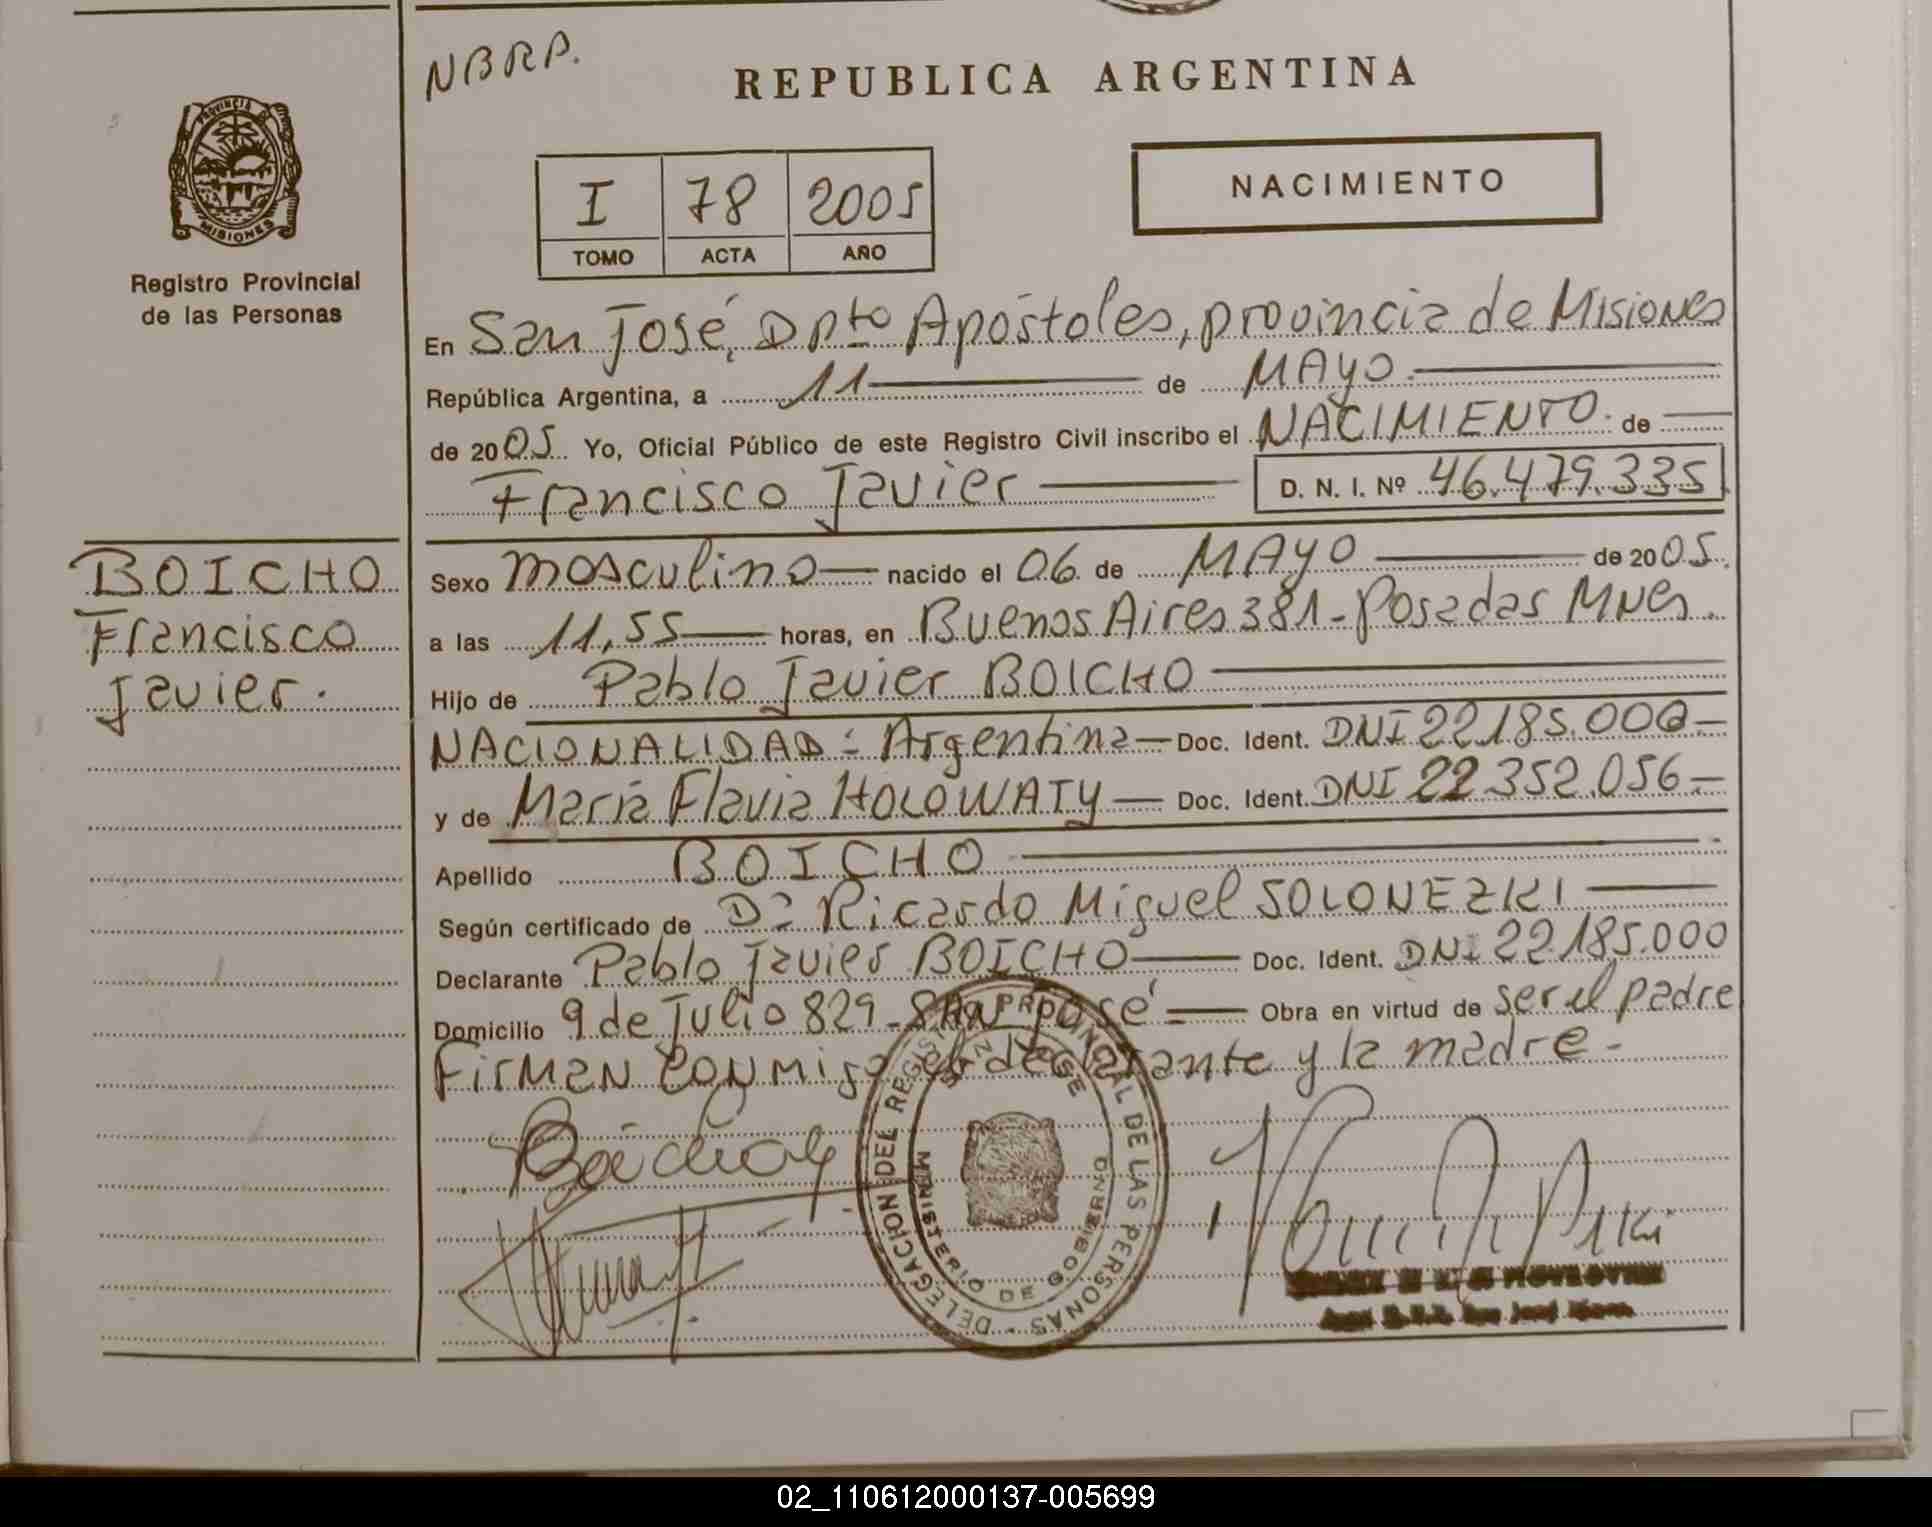 NBRP.
REPUBLICA ARGENTINA
PROVINCIA
MISIONES
Registro Provincial
de las Personas
I 78 2005
TOMO ACTA AÑO
NACIMIENTO
En San José, Dpto Apóstoles, provincia de Misiones
República Argentina, a 11 de MAYO
de 2005 Yo, Oficial Público de este Registro Civil inscribo el NACIMIENTO de
Francisco Javier D. N. I. Nº 46.479.335
BOICHO
Francisco
Javier.
Sexo masculino nacido el 06 de MAYO de 2005.
a las 11,55 horas, en Buenos Aires 381 - Posadas Mnes.
Hijo de Pablo Javier BOICHO
NACIONALIDAD: Argentina Doc. Ident. DNI 22.185.000
y de María Flavia HOLOWATY Doc. Ident. DNI 22.352.056
Apellido BOICHO
Según certificado de Dr Ricardo Miguel SOLONEZKI
Declarante Pablo Javier BOICHO Doc. Ident. DNI 22.185.000
Domicilio 9 de Julio 829 - SAN José Obra en virtud de ser el padre
Firman conmigo el declarante y la madre.
DELEGACION DEL REGISTRO PROVINCIAL DE LAS PERSONAS
SAN JOSE
MINISTERIO DE GOBIERNO
02_110612000137-005699